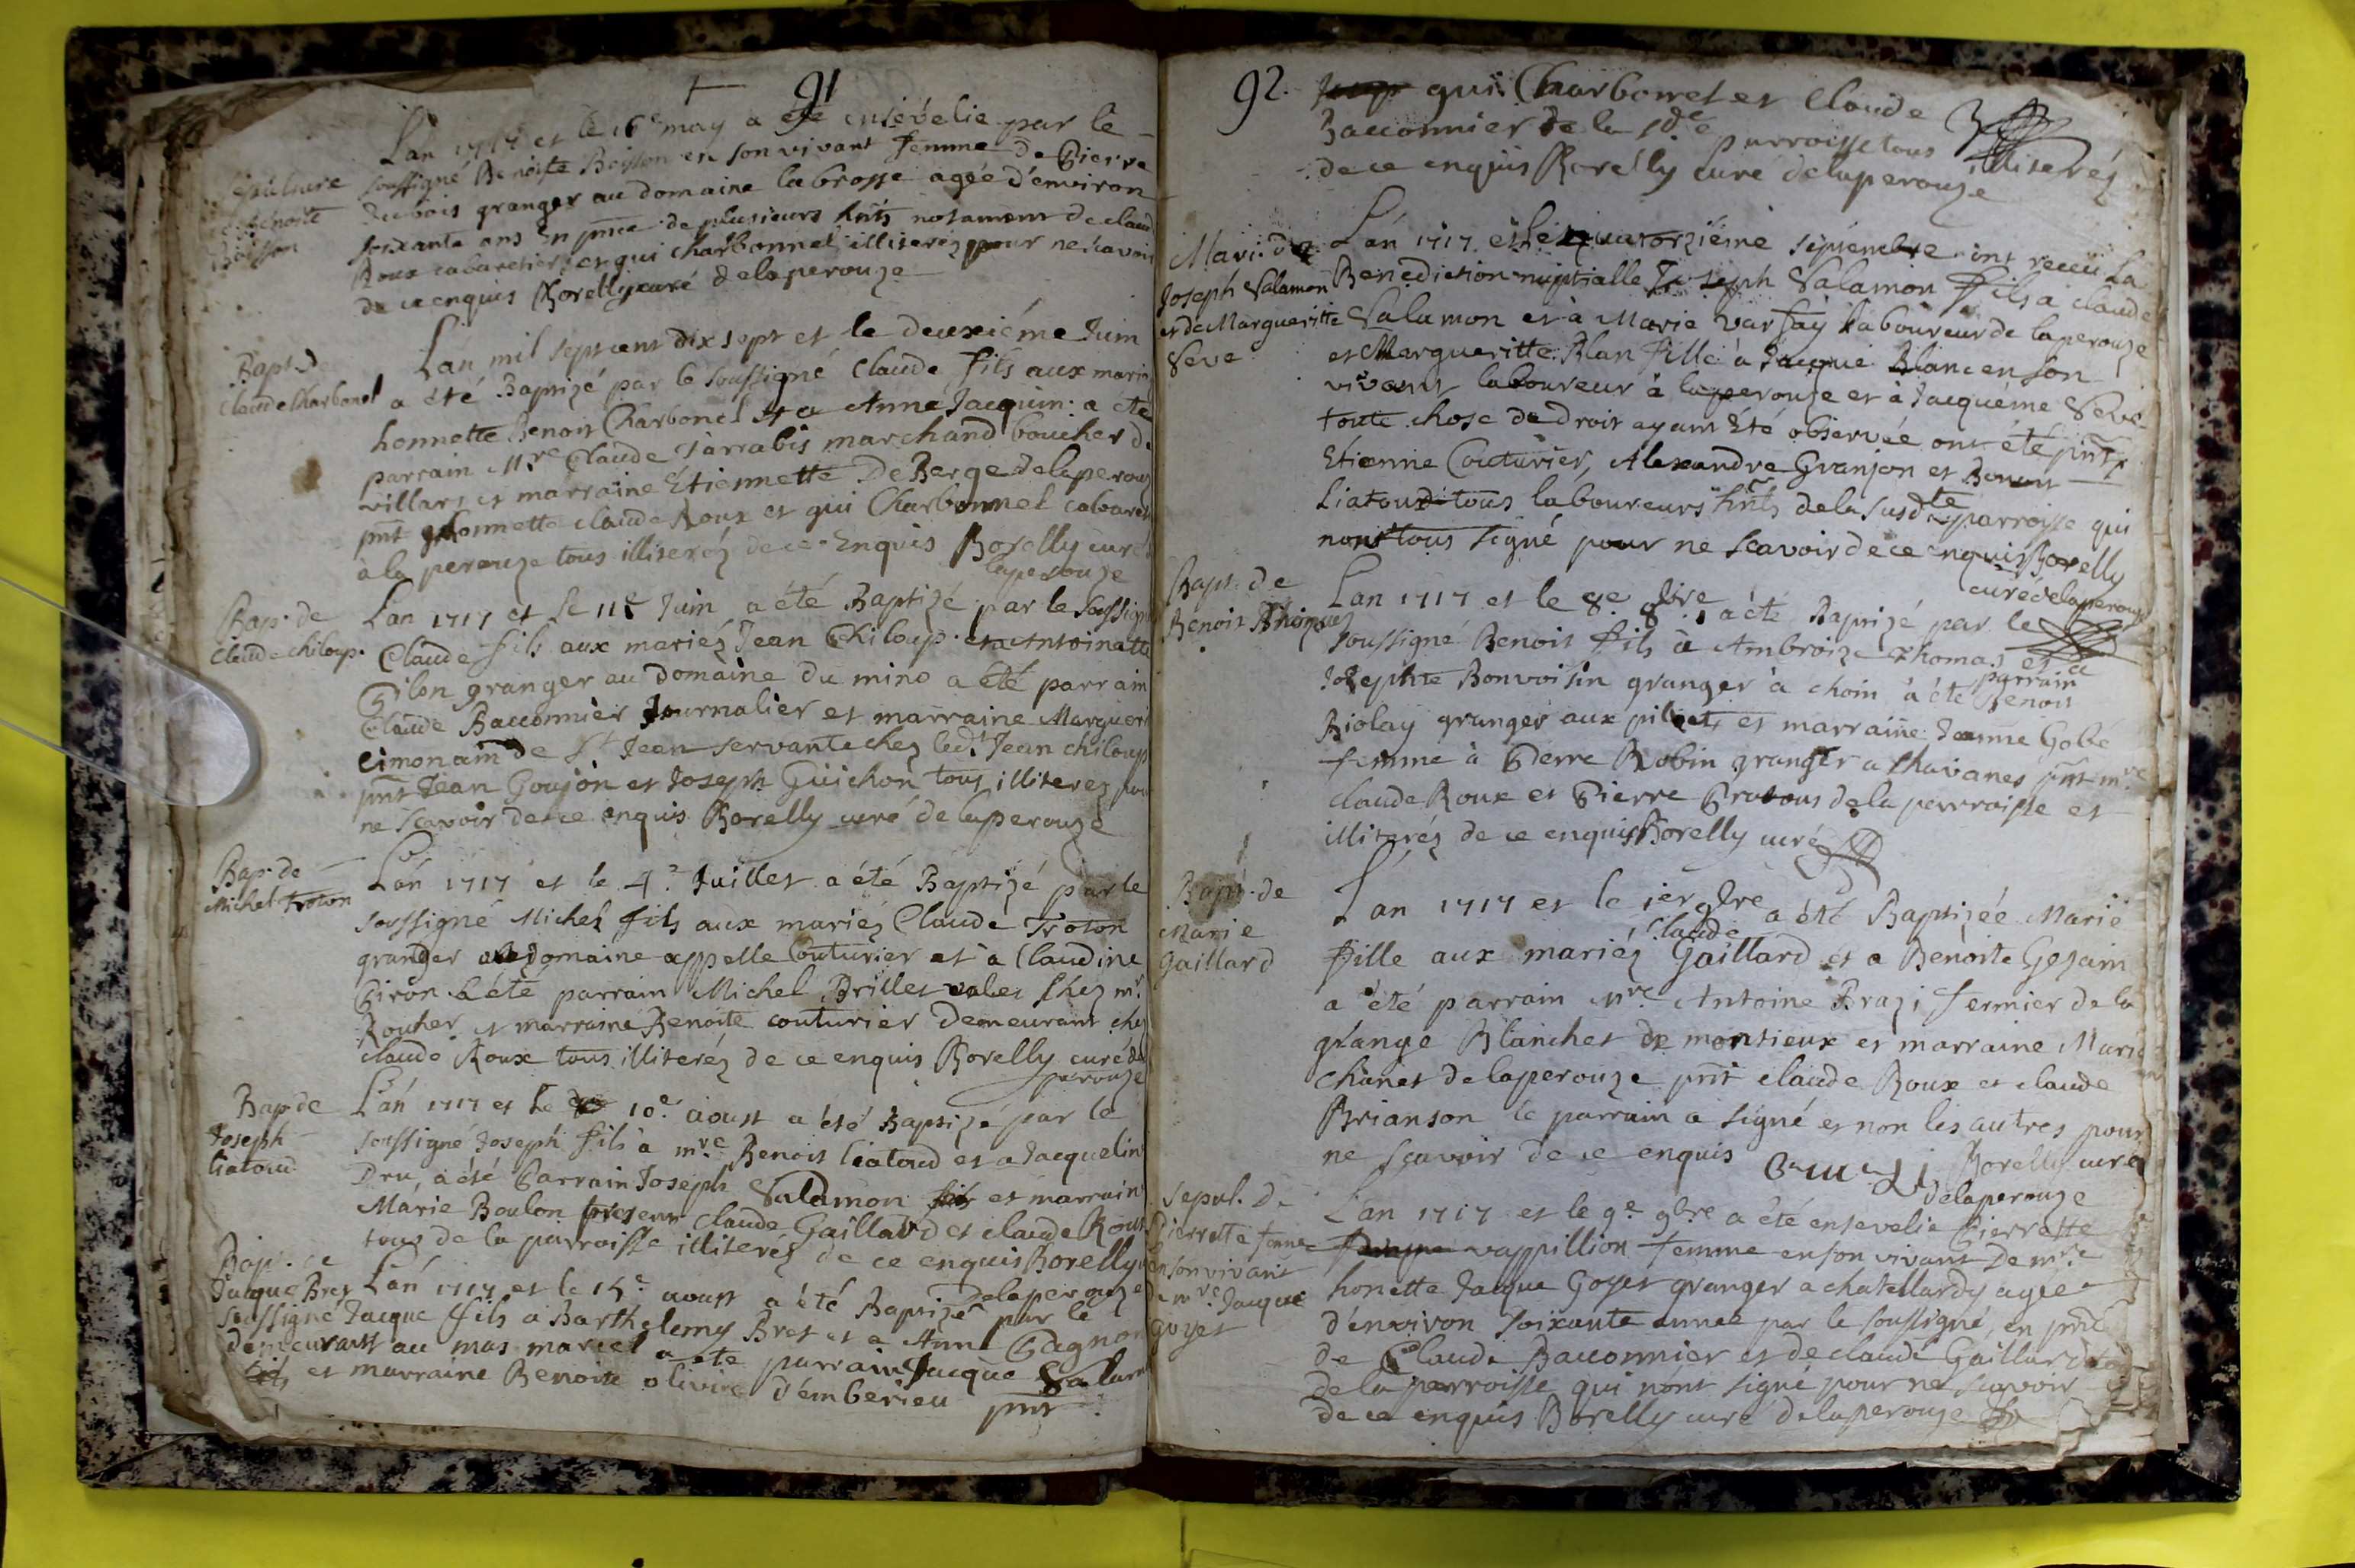 91
Lan 1717 et le 16e may a été ensévélie par le
Sepulture
de Benoite
Boisson
soussigné Benoiste Boisson en son vivant femme de Pierre
Dubois granger au domaine la brosse agée d'environ
soixante ans en pnce de plusieurs hnts notament de claud
Roux cabaretier, et gui Charbonnel illiteréz pour ne scavoir
de ce enquis Borelly curé delaperouze
Bapt. De
Claude Charbonel
Lan mil sept cent dix sept et le deuxiéme Juin
a été Baptizé par le soussigné Claude fils aux mariez
honnette Benoit Charbonel et a Anne Jacquin a été
parrain Mre Claude Jarrabis marchand boucher d.
villars et marraine Etiennette De Berge delaperouz
pnt honnette claude Roux et gui Charbonnel cabaret
à la perouze tous illiteréz de ce Enquis Borelly curé
laperouze
Bap. de
Claude chiloup.
Lan 1717 et le 11e Juin a été Baptizé par le soussigné
Claude fils aux mariéz Jean Chiloup et a Antoinatte
Pilon granger au Domaine du mino a été parrain
Claude Bacconnier Journalier et marraine Margueri
cimonain de St Jean servante chez ledt Jean chiloup
pnt Jean Goujon et Joseph Guichon tous illiterez pou
ne scavoir de ce enquis Borelly curé de laperouze
Bap. de
Michel Troton
Lan 1717 et le 4e Juillet a été Baptizé par le
soussigné Michel fils aux mariéz Claude Troton
granger au domaine appelle Couturier et à Claudine
Piron a été parrain Michel Brillet valet chez mr.
Rouher et marraine Benoite couturier demeurant chez
claude Roux tous illiteréz de ce enquis Borelly curé dela
perouze
Bap de
Joseph
liatoud
Lan 1717 et le 10e. aoust a été Baptizé par le
soussigné Joseph fils à mre Benoit liatoud et a Jacqueline
Dru, a été Parrain Joseph Salamon et marrain
Marie Boulon present Claude Gaillard et claude Roux
tous de la parroisse illiteréz de ce enquis Borelly
delaperouze
Bap. de
Jacque Bret
Lan 1717 et le 15e aoust a été Baptizé par le
soussigné Jacque fils a Barthelemy Bret et a Ann Gagnon
demeurant au mas marcel a été parrain Jacque
et marraine Benoite olivier d'emberieu pnt
92.
gui Charbonnel et Claude
Bacconnier de la sde parroisse tous illiteréz
de ce enquis Borelly curé delaperouze
Mari. de
Joseph Salamon
et de Margueritte
Seve
Lan 1717 et le quatorziéme septembre ont receu la
Benediction nuptialle Joseph Salamon fils a claude
Salamon et à Marie Varfay laboureur de laperouze
et Margueritte Blan fille à Jacque Blanc en son
vivant laboureur à laperouze et à Jacquéme Seve
toute chose de droit ayant été observée ont été pnts
Etienne Couturier, Alexandre Granjon et Benoit
Liatoud tous laboureurs hnts de la susdte parroisse qui
nont tous signé pour ne scavoir de ce enquis Borelly
curé delaperouze
Bapt. de
Benoit Thomas
Lan 1717 et le 8e. 8bre a été Baptizé par le
soussigné Benoit fils à Ambroize Thomas et a
Josephte Bonvoisin granger à choin a été parrain Benoit
Biolay granger aux pillets et marraine Jeanne Gobe
femme à Pierre Robin granger a chavanes pnt mre
claude Roux et Pierre tous de la parroisse et
illiteréz de ce enquis Borelly curé
Bapt. de
Marie
Gaillard
Lan 1717 et le 1er 9bre a été Baptizée Marie
fille aux mariéz Claude Gaillard et a Benoite Gojain
a été parrain Mre Antoine Brazi fermier de la
grange Blanchet de montieux et marraine Marie
chanet delaperouze pnt claude Roux et claude
Brianson le parrain a signé et non les autres pour
ne scavoir de ce enquis Borelly curé
delaperouze
Sepul. De
Pierrette femme
en son vivant
de mre Jacque
Goyet
Lan 1717 et le 9e 9bre a été ensevelie Pierrette
vappillion femme en son vivant De mre
honette Jacque Goyet granger a chatellardy agée
d'environ soixante année par le soussigné, en pnce
de Claude Bacconnier et de claude Gaillard tous
de la parroisse qui nont signé pour ne scavoir
de ce enquis Borelly curé delaperouze